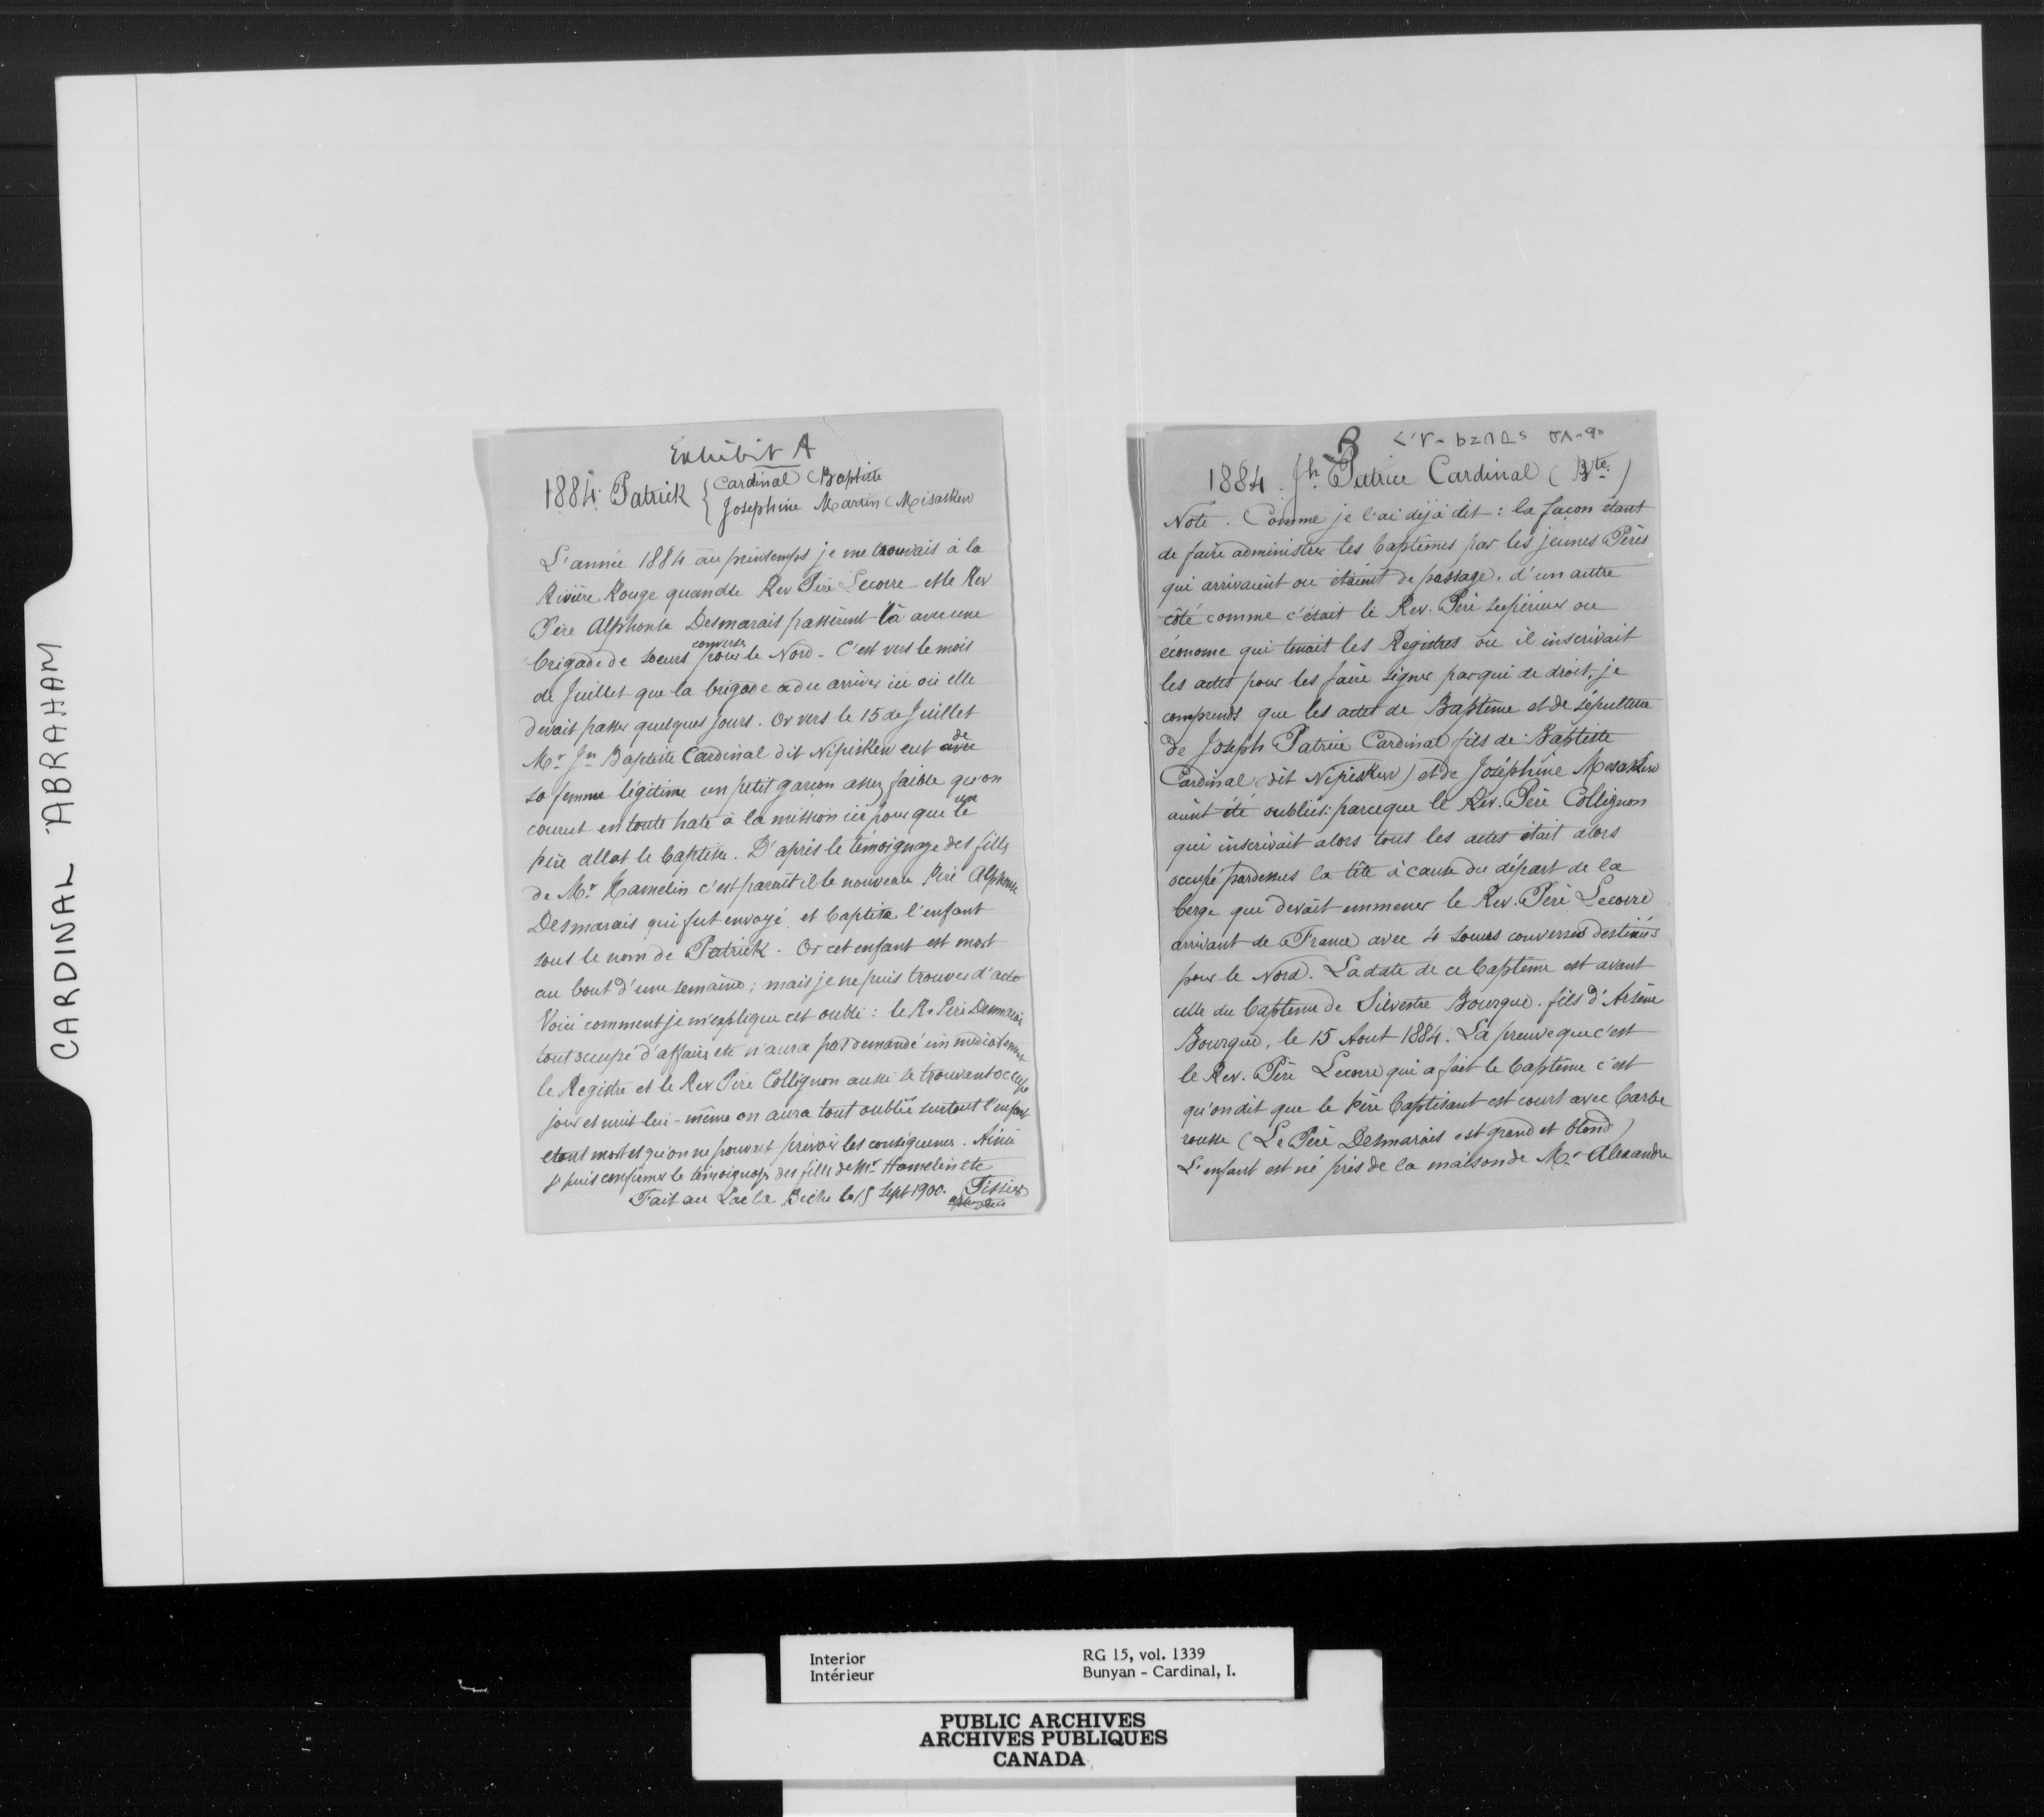 CARDINAL ABRAHAM
Exhibit A
1884. Patrick { Cardinal (Baptiste
Josephine Martin (Misasken
L'année 1884 au printemps je me trouvais à la
Rivière Rouge quand le Rev Père Lecorre et le Rev
Père Alphonse Desmarais passèrent là avec une
brigade de soeurs converses pour le Nord - C'est vers le mois
de Juillet que la brigade a du arriver ici où elle
devait passer quelques jours. Or vers le 15 de Juillet
Mr Jn Baptiste Cardinal dit Nipisken eut de
sa femme légitime un petit garçon assez faible qu'on
courut en toute hate à la mission ici pour que un
père allat le baptiser. D'après le témoignage des filles
de Mr Hamelin c'est parait il le nouveau Père Alphonse
Desmarais qui fut envoyé et baptisa l'enfant
sous le nom de Patrick - Or cet enfant est mort
au bout d'une semaine; mais je ne puis trouver d'acte
Voici comment je m'explique cet oubli : le R. Père Desmarais
tout occupé d'affaires etc n'aura pas demandé immédiatement
le Registre et le Rev Père Collignon aussi se trouvant occupé
jour et nuit lui-même on aura tout oublié surtout l'enfant
etant mort et qu'on ne pouvait prévoir les conséquences. Ainsi
je puis confirmer le témoignage des filles de Mr Hamelin etc
Fait au Lac la Biche le 15 Sept 1900. Tissier
B
1884. Jh. Patrice Cardinal (Bte.)
Note. Comme je l'ai déjà dit : la façon étant
de faire administrer les baptêmes par les jeunes Pères
qui arrivaient ou étaient de passage, d'un autre
côté comme c'était le Rev. Père supérieur ou
économe qui tenait les Registres où il inscrivait
les actes pour les faire signer par qui de droit, je
comprends que les actes de Baptême et de sépulture
de Joseph Patrice Cardinal fils de Baptiste
Cardinal (dit Nipisken) et de Joséphine Mesasken
aient été oubliés : parceque le Rev. Père Collignon
qui inscrivait alors tous les actes était alors
occupé pardessus la tête à cause du départ de la
berge qui devait emmener le Rev. Père Lecorre
arrivant de France avec 4 soeurs converses destinées
pour le Nord. La date de ce baptême est avant
celle du baptême de Silvestre Bourque. fils d'Arsène
Bourque, le 15 Aout 1884. La preuve que c'est
le Rev. Père Lecorre qui a fait le baptême c'est
qu'on dit que le Père baptisant est court avec barbe
rousse (Le Père Desmarais est grand et blond)
L'enfant est né près de la maison de Mr Alexandre
Interior
Intérieur
RG 15, vol. 1339
Bunyan - Cardinal, I.
PUBLIC ARCHIVES
ARCHIVES PUBLIQUES
CANADA